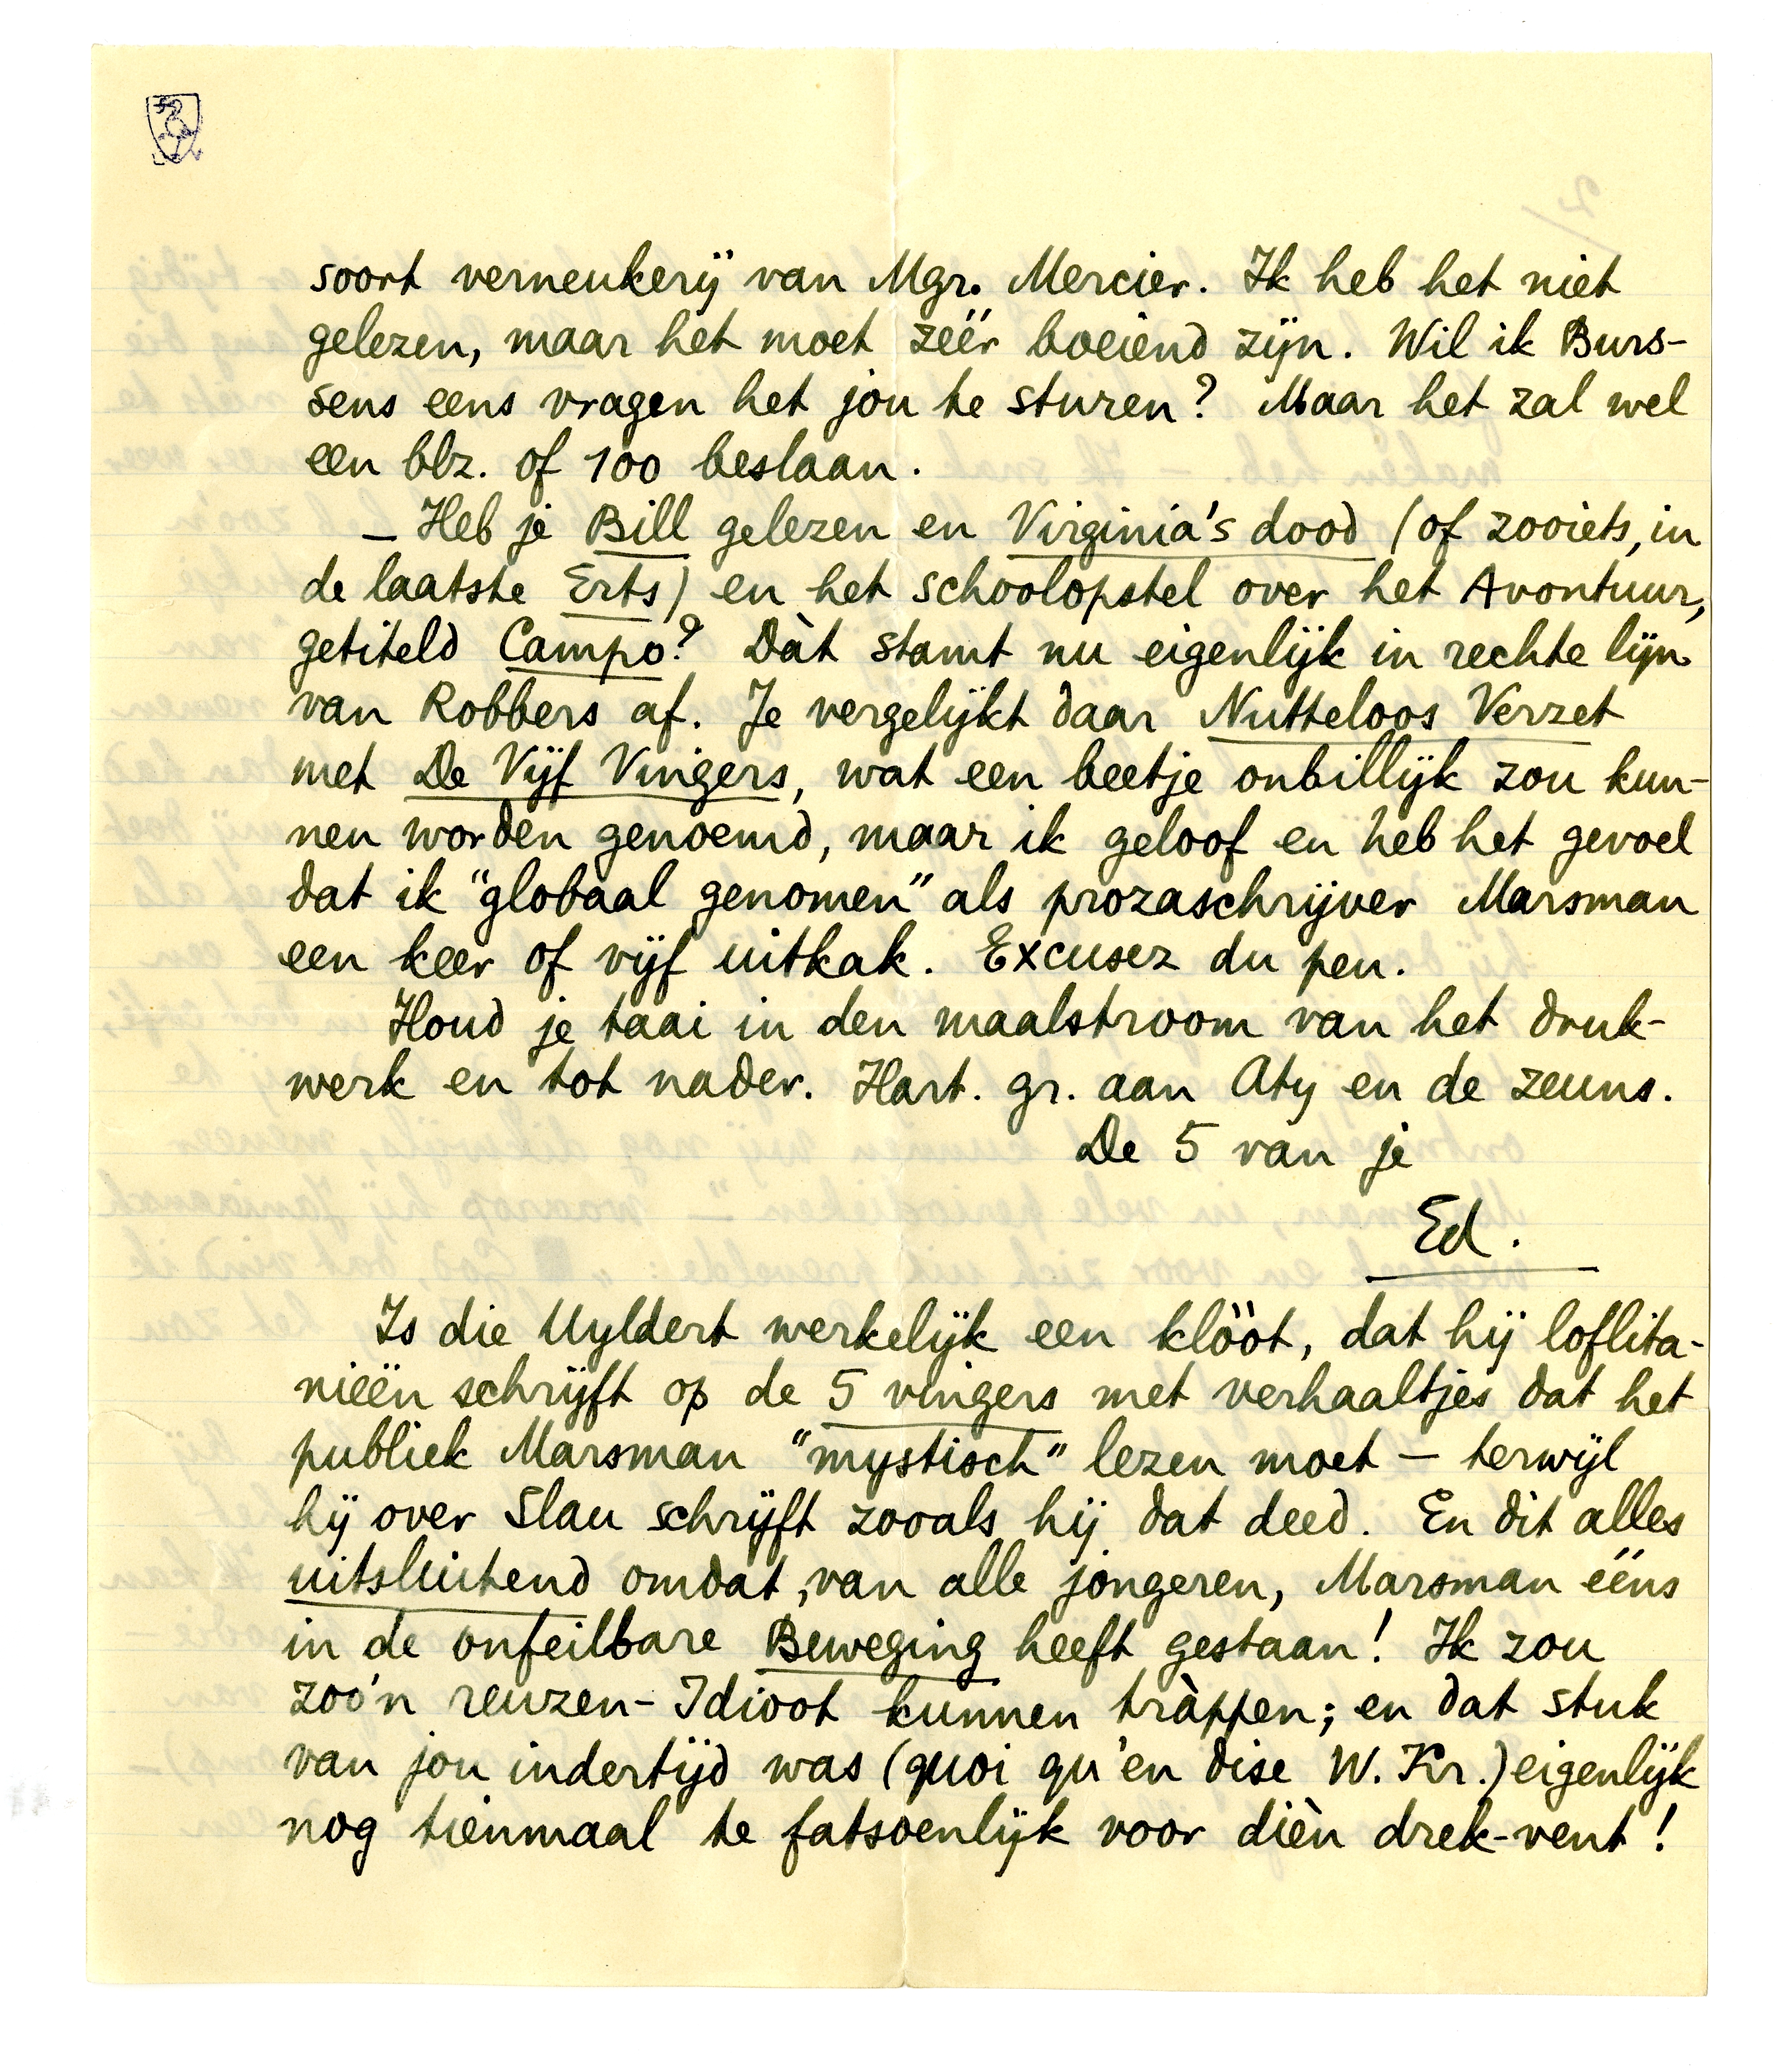 soort verneukerij van Mgr. Mercier. Ik heb het niet
gelezen, maar het moet zéér boeiend zijn. Wil ik Burs-
sens eens vragen het jou te sturen? Maar het zal wel
een blz. of 100 beslaan.
— Heb je Bill gelezen en Virginia's dood (of zooiets, in
de laatste Erts) en het schoolopstel over het Avontuur,
getiteld Campo? Dàt stamt nu eigenlijk in rechte lijn
van Robbers af. Je vergelijkt daar Nutteloos Verzet
met De Vijf Vingers, wat een beetje onbillijk zou kun-
nen worden genoemd, maar ik geloof en heb het gevoel
dat ik "globaal genomen" als prozaschrijver Marsman
een keer of vijf uitkak. Excusez du peu.
Houd je taai in den maalstroom van het druk-
werk en tot nader. Hart. gr. aan Aty en de zeuns.
De 5 van je
Ed.
Is die Uyldert werkelijk een klööt, dat hij loflita-
nieën schrijft op de 5 vingers met verhaaltjes dat het
publiek Marsman "mystisch" lezen moet — terwijl
hij over Slau schrijft zooals hij dat deed. En dit alles
uitsluitend omdat, van alle jongeren, Marsman ééns
in de onfeilbare Beweging heeft gestaan! Ik zou
zoo'n reuzen-Idioot kunnen tràppen; en dat stuk
van jou indertijd was (quoi qu'en dise W. Kr.) eigenlijk
nog tienmaal te fatsoenlijk voor dièn drek-vent!